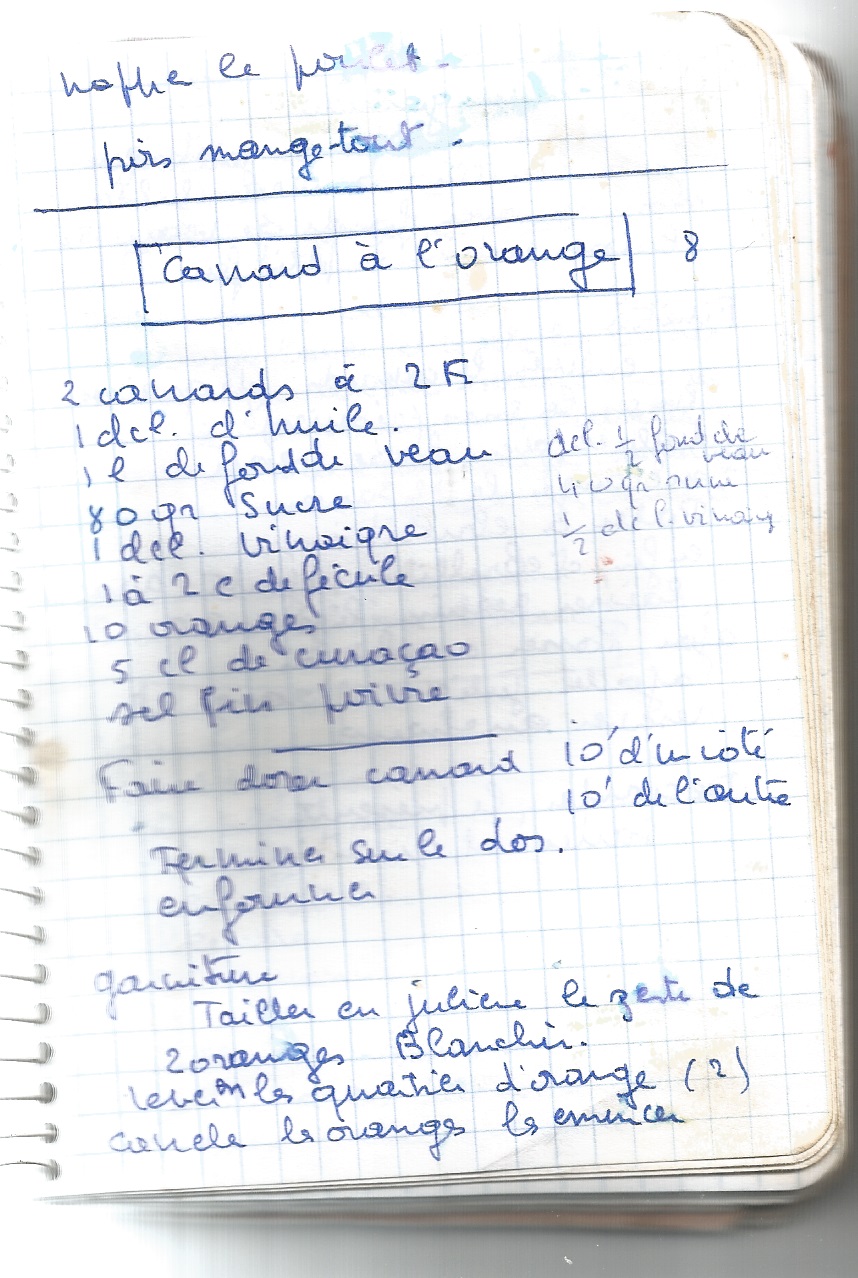 nappe le poulet.
pois mange-tout.
Canard à l'orange 8
2 canards à 2 K
1 dcl. d'huile.
1 l de fond de veau
80 gr Sucre
1 dcl. Vinaigre
1 à 2 c de fécule
10 oranges
5 cl de curaçao
sel fin poivre
dcl. 1/2 fond de
veau
40 gr sucre
1/2 dcl. vinaig
Faire dorer canard 10' d'un côté
10' de l'autre
Terminer sur le dos.
enfourner
garniture
Tailler en julienne le zeste de
2 oranges Blanchir.
lever les quartiers d'orange (2)
canele les oranges les émincer